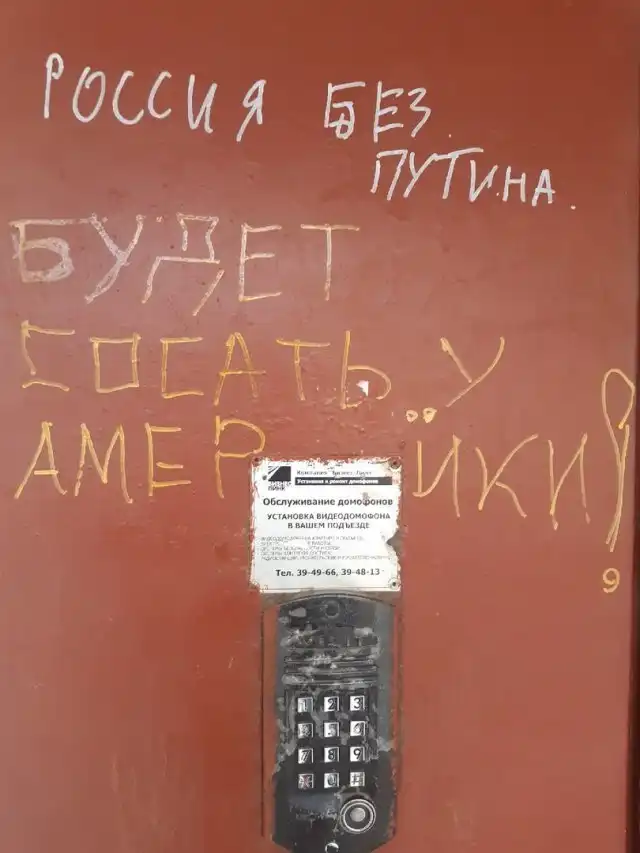 РОССИЯ БЕЗ
ПУТИНА.
БУДЕТ
СОСАТЬ У
АМЕР ИКИ!
9
БИЗНЕС
ЛИНК
Компания "Бизнес-Линк"
Установка и ремонт домофонов
Обслуживание домофонов
УСТАНОВКА ВИДЕОДОМОФОНА
В ВАШЕМ ПОДЪЕЗДЕ
Тел. 39-49-66, 39-48-13
1 2 3
7 8 9